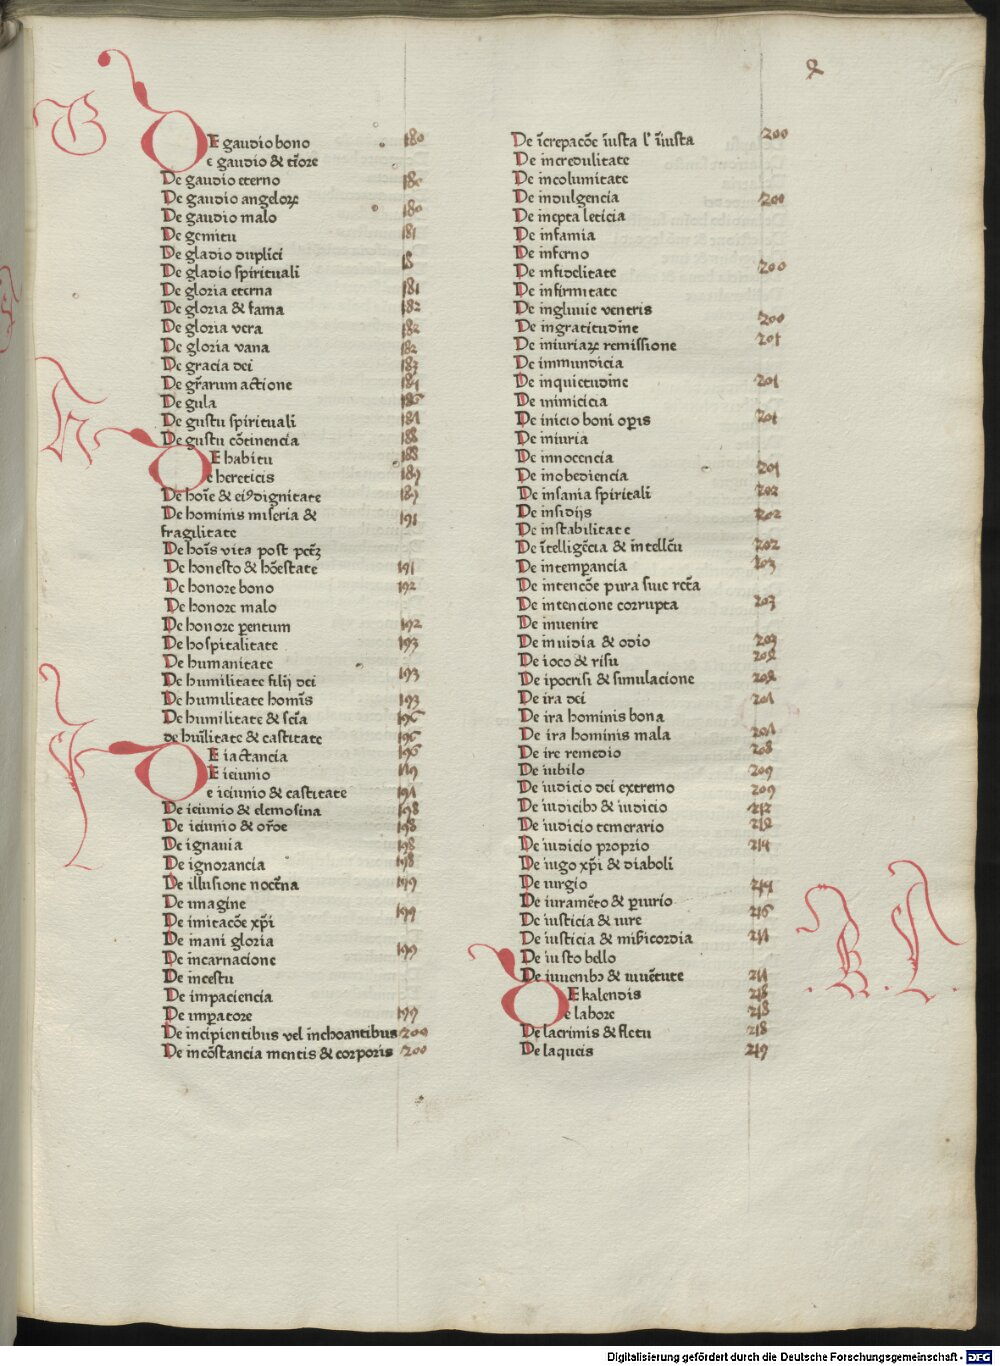 G
DE gaudio bono 180
De gaudio & t̄iore
De gaudio eterno 180
De gaudio angeloꝝ
De gaudio malo 180
De gemitu 181
De gladio duplici
De gladio spirituali
De gloria eterna 181
De gloria & fama 182
De gloria vera 182
De gloria vana 182
De gracia dei 183
De gr̄arum actione
De gula
De gustu spirituali
De gustu cōtinencia 188
H
DE habitu 188
De hereticis 189
De hoīe & eiꝰ dignitate 189
De hominis miseria &
fragilitate 191
De hoīs vita post pctꝫ
De honesto & hōestate 191
De honore bono 192
De honore malo
De honore parentum 192
De hospitalitate 193
De humanitate
De humilitate filij dei 193
De humilitate hominis 193
De humilitate & scīa 196
de hūilitate & castitate 196
I
DE iactancia 196
DE ieiunio
De ieiunio & castitate
De ieiunio & elemosina 198
De ieiunio & orōe 198
De ignauia 198
De ignorancia 198
De illusione noctͬna 199
De imagine
De imitacōe xp̄i 199
De inani gloria
De incarnacione 199
De incestu
De impaciencia
De imꝑatore 199
De incipientibus vel inchoantibus 200
De incōstancia mentis & corporis 200
De īcrepacōe iusta l' īiusta 200
De incredulitate
De incolumitate
De indulgencia 200
De inepta leticia
De infamia
De inferno
De infidelitate 200
De infirmitate
De ingluuie ventris
De ingratitudine 200
De iniuriaꝝ remissione 201
De immundicia
De inquietudine 201
De inimicicia
De inicio boni oꝑis 201
De iniuria
De innocencia
De inobediencia 201
De insania spiritali 202
De insidijs 202
De instabilitate
De ītelligēcia & intellcū 202
De intemꝑancia 203
De intencōe pura siue rcta
De intencione corrupta 203
De inuenire
De inuidia & odio 203
De ioco & risu
De ipocrisi & simulacione
De ira dei
De ira hominis bona
De ira hominis mala
De ire remedio 208
De iubilo 209
De iudicio dei extremo 209
De iudicibꝫ & iudicio 212
De iudicio temerario
De iudicio proprio 214
De iugo xp̄i & diaboli
De iurgio 214
De iuramēto & ꝑiurio 216
De iusticia & iure
De iusticia & misericordia
De iusto bello
De iuuenibꝫ & iuuētute
K. L.
DE kalendis 218
De labore 218
De lacrimis & fletu 218
De laqueis 219
Digitalisierung gefördert durch die Deutsche Forschungsgemeinschaft - DFG